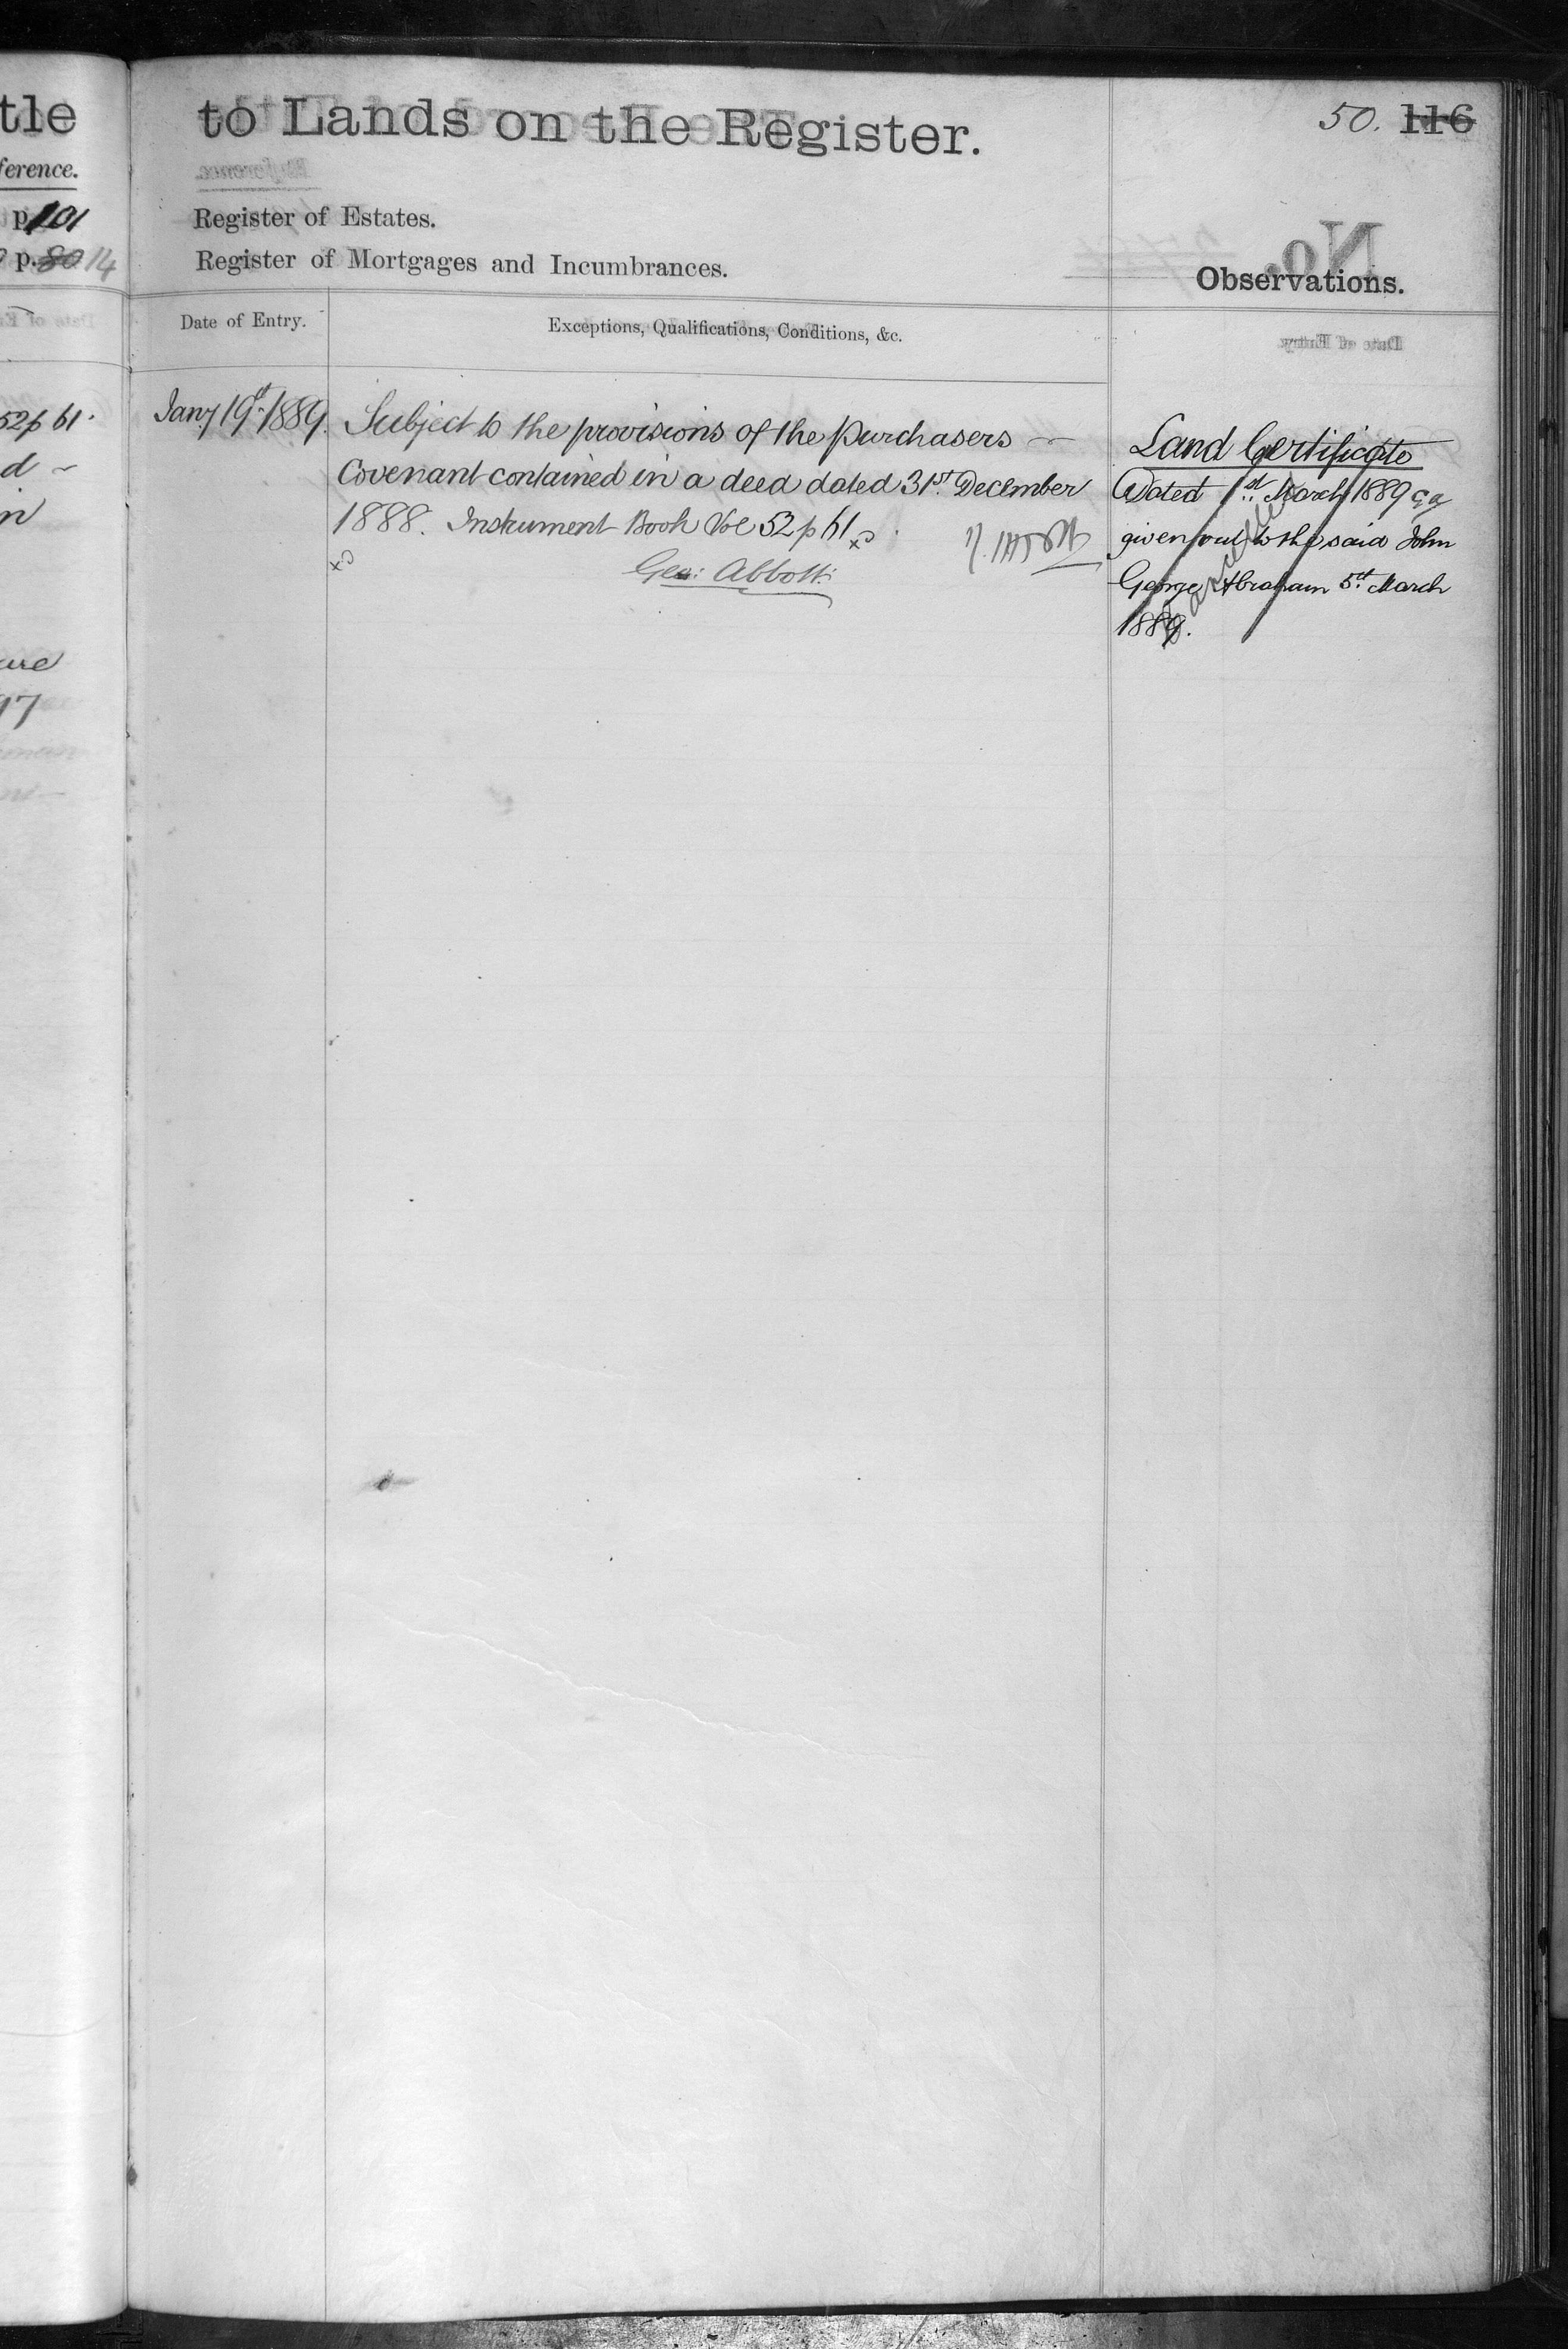 tle
ference.
p. 101
p. 80 14
52 p 61.
d
in
ure
97
to Lands on the Register.
50. 116
Register of Estates.
Register of Mortgages and Incumbrances.
No.
Observations.
Date of Entry.
Exceptions, Qualifications, Conditions, &c.
Date of Entry.
Jany 19th 1889.
Subject to the provisions of the Purchasers
Covenant contained in a deed dated 31st December
1888. Instrument Book Vol 52 p 61
Geo: Abbott
Land Certificate
Dated 1st March 1889
given out to the said John
George Abraham 5th March
1889.